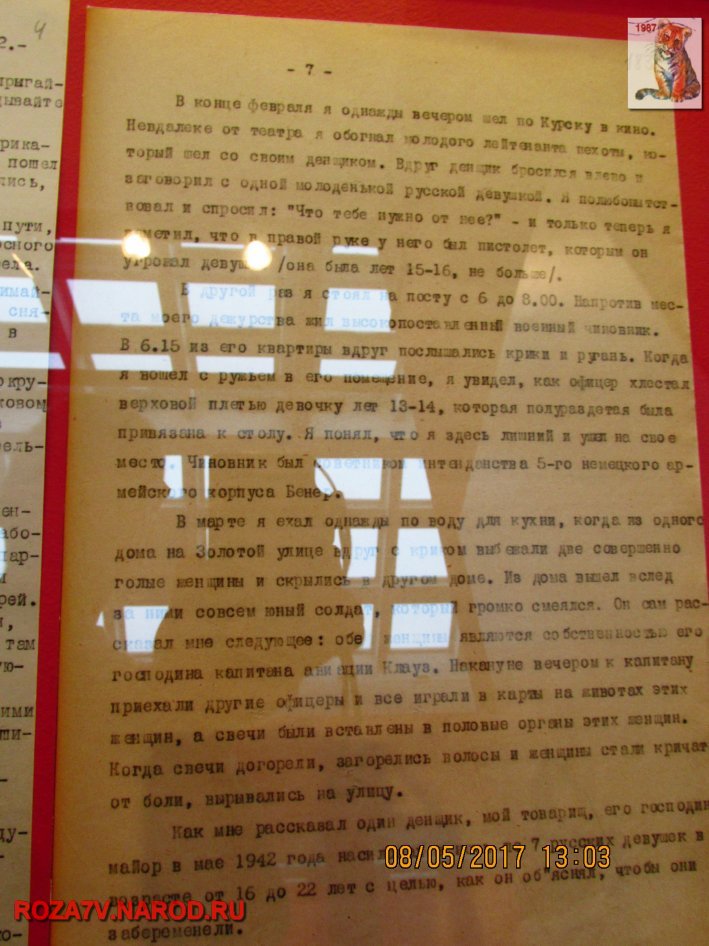 4
2.-
рыгай-
дывайте
рика-
пошел
лись,
пути,
осного
ела.
имай-
сня-
в
окру-
ковом
ель-
ен-
або-
пар-
рей.
там
ую-
ими
ши-
ду-
то-
1987
- 7 -
В конце февраля я однажды вечером шел по Курску в кино.
Невдалеке от театра я обогнал молодого лейтенанта пехоты, ко-
торый шел со своим денщиком. Вдруг денщик бросился влево и
заговорил с одной молоденькой русской девушкой. Я полюбопытст-
вовал и спросил: "Что тебе нужно от нее?" - и только теперь я
заметил, что в правой руке у него был пистолет, которым он
угрожал девушке /она была лет 15-16, не больше/.
В другой раз я стоял на посту с 6 до 8.00. Напротив мес-
та моего дежурства жил высокопоставленный военный чиновник.
В 6.15 из его квартиры вдруг послышались крики и ругань. Когда
я вошел с ружьем в его помещение, я увидел, как офицер хлестал
верховой плетью девочку лет 13-14, которая полураздетая была
привязана к столу. Я понял, что я здесь лишний и ушел на свое
место. Чиновник был советником интенданства 5-го немецкого ар-
мейского корпуса Бенер.
В марте я ехал однажды по воду для кухни, когда из одного
дома на Золотой улице вдруг с криком выбежали две совершенно
голые женщины и скрылись в другом доме. Из дома вышел вслед
за ними совсем юный солдат, который громко смеялся. Он сам рас-
сказал мне следующее: обе женщины являются собственностью его
господина капитана авиации Клауз. Накануне вечером к капитану
приехали другие офицеры и все играли в карты на животах этих
женщин, а свечи были вставлены в половые органы этих женщин.
Когда свечи догорели, загорелись волосы и женщины стали кричат
от боли, вырывались на улицу.
Как мне рассказал один денщик, мой товарищ, его господин
майор в мае 1942 года 7 русских девушек в
возрасте от 16 до 22 лет с целью, как он об"яснял, чтобы они
забеременели.
08/05/2017 13:03
ROZA7V.NAROD.RU